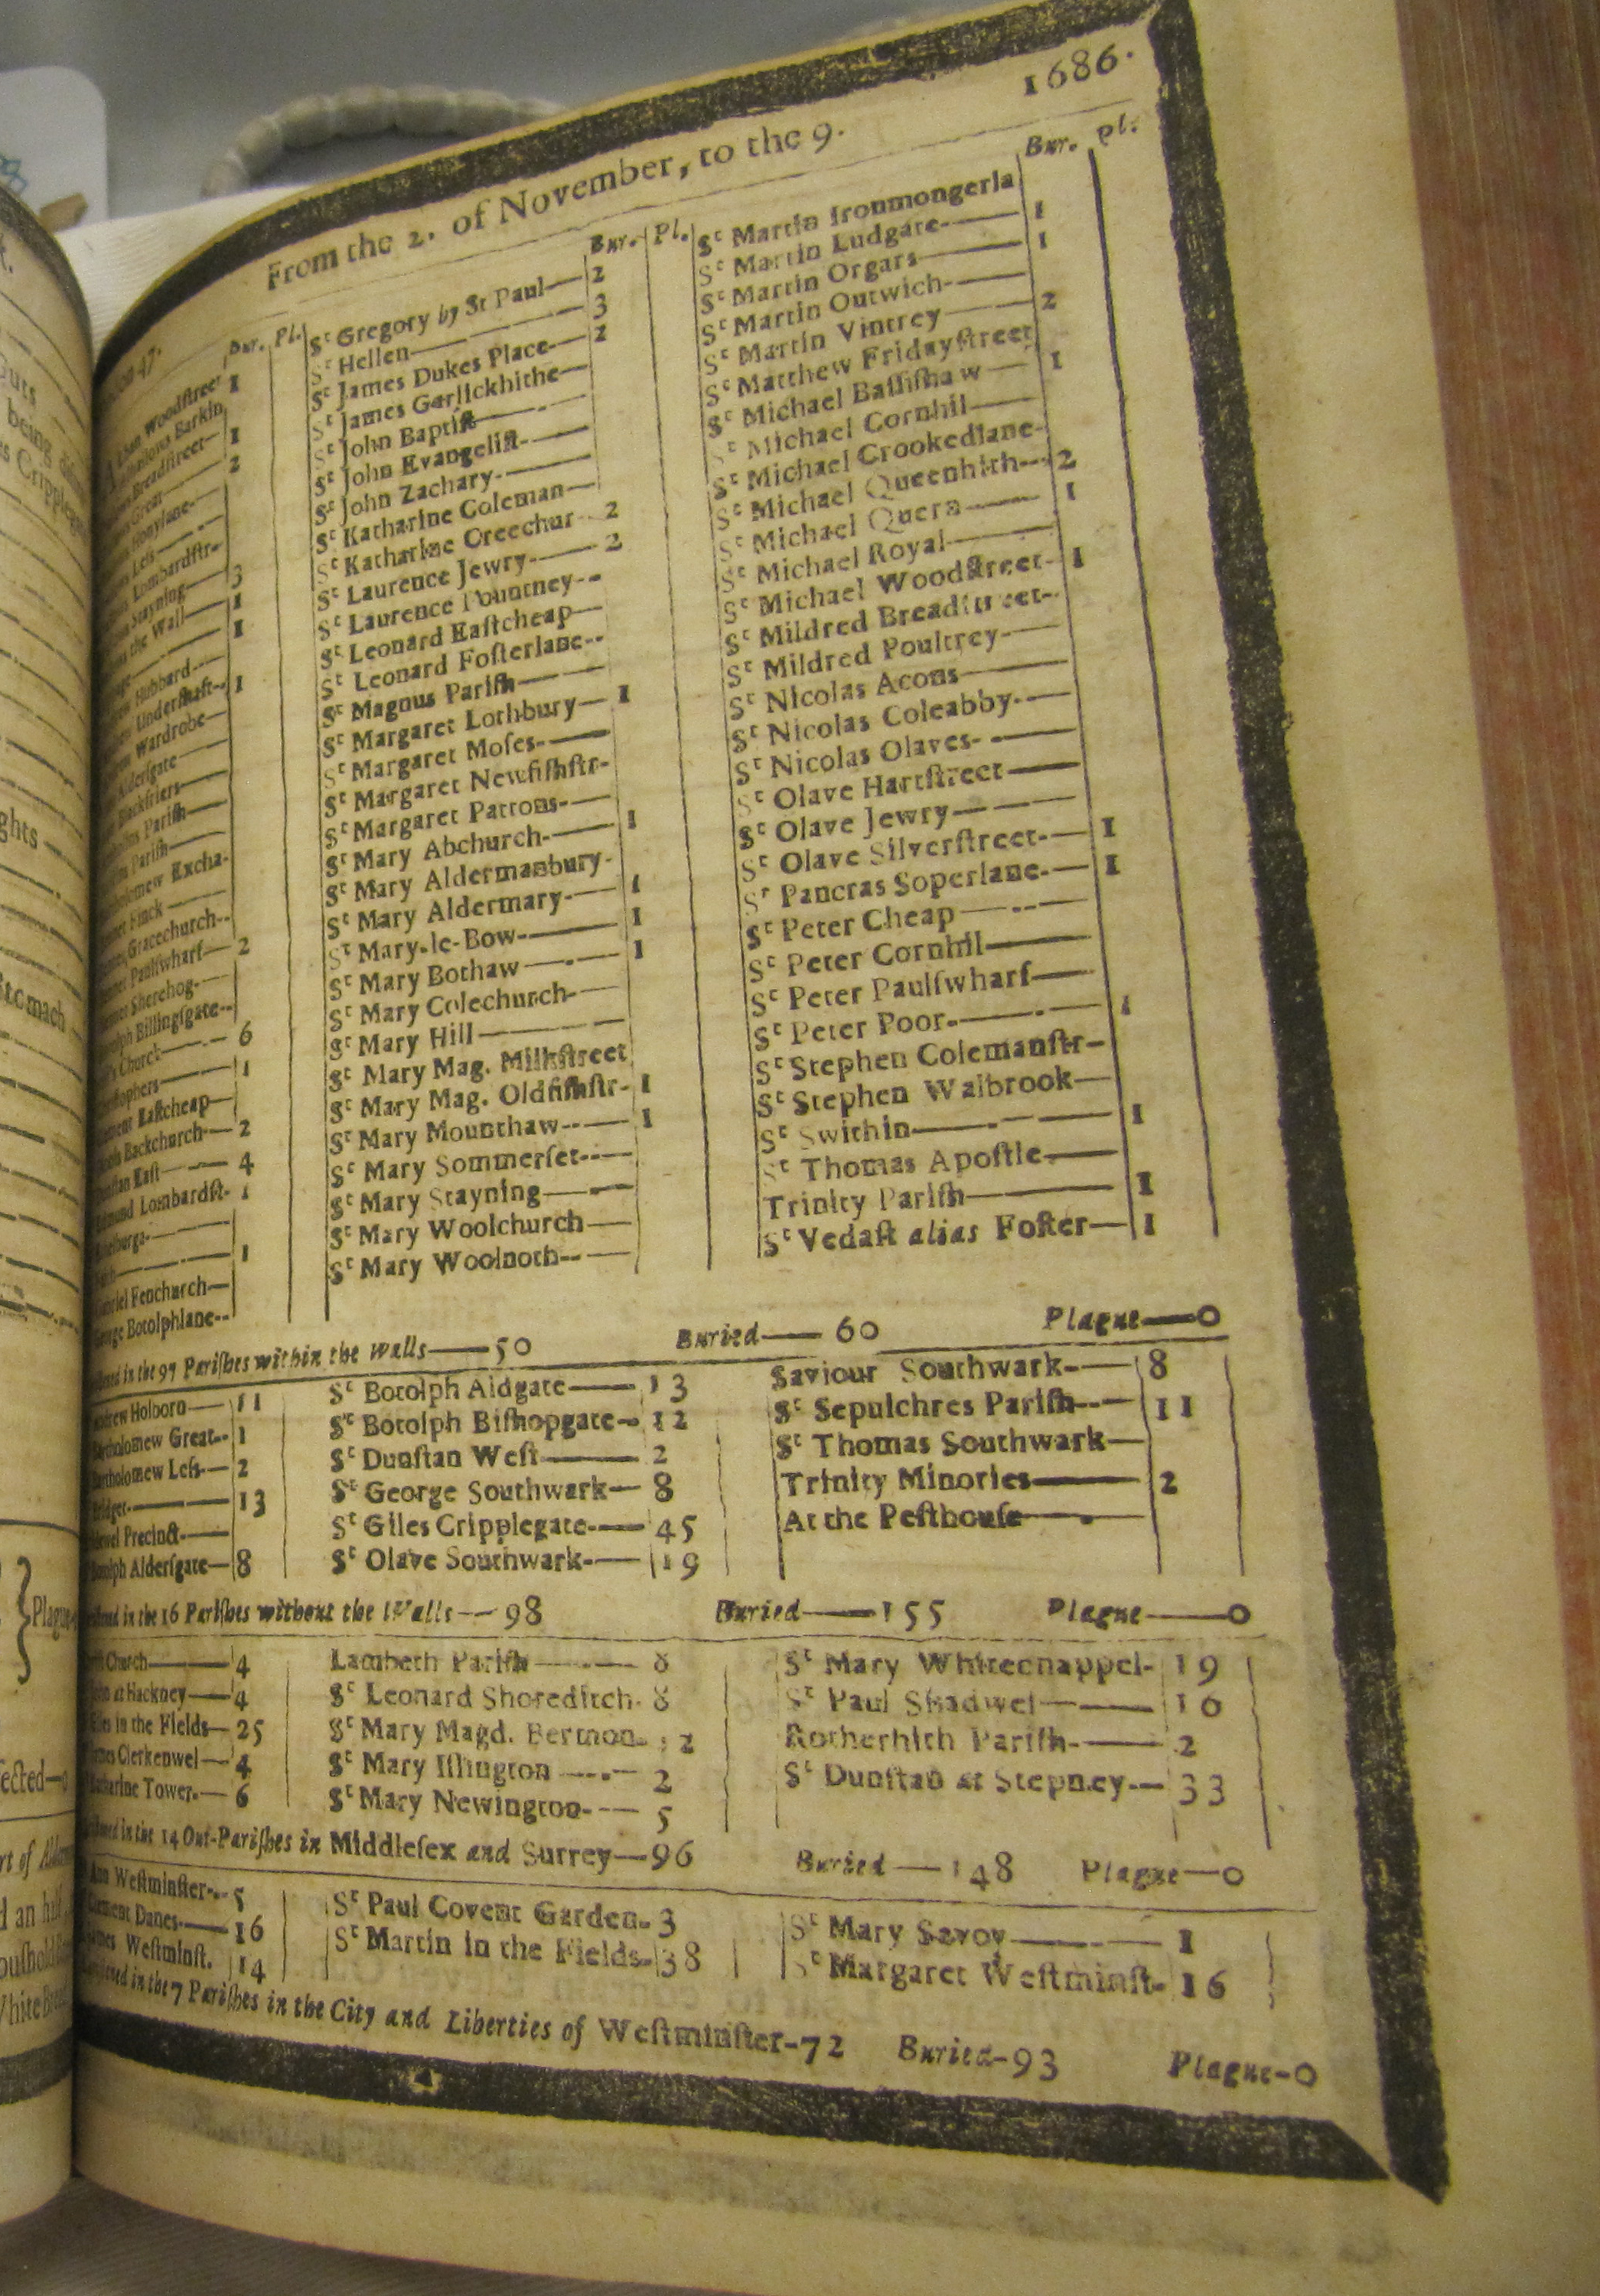 From the 2. of November, to the 9. 1686.
Bur. Pl.
Woodstreet 1
Barkin
Breadstreet— 1
Great— 2
Honylane—
Less—
Lombardstr—
Stayning— 3
the Wall— 1
1
Hubbard—
Undershaft— 1
Wardrobe—
Aldersgate—
Blackfriers—
Parish—
Parish—
Excha-
Finck—
Gracechurch—
Paulswharf— 2
Sherehog—
Billingsgate—
Church— 6
1
Eastcheap—
Backchurch— 2
East— 4
Lombardst- 1
1
Fenchurch—
Botolphlane—
Bur. Pl.
St Gregory by St Paul— 2
St Hellen— 3
St James Dukes Place— 2
St James Garlickhithe—
St John Baptist—
St John Evangelist—
St John Zachary—
St Katharine Coleman—
St Katharine Creechur 2
St Laurence Jewry— 2
St Laurence Pountney—
St Leonard Eastcheap—
St Leonard Fosterlane—
St Magnus Parish—
St Margaret Lothbury— 1
St Margaret Moses—
St Margaret Newfishstr-
St Margaret Pattons—
St Mary Abchurch— 1
St Mary Aldermanbury-
St Mary Aldermary— 1
St Mary-le-Bow— 1
St Mary Bothaw— 1
St Mary Colechurch—
St Mary Hill—
St Mary Mag. Milkstreet
St Mary Mag. Oldfishstr- 1
St Mary Mounthaw— 1
St Mary Sommerset—
St Mary Stayning—
St Mary Woolchurch—
St Mary Woolnoth—
Bur. Pl.
St Martin Ironmongerla
St Martin Ludgate— 1
St Martin Orgars— 1
St Martin Outwich—
St Martin Vintrey— 2
St Matthew Fridaystreet
St Michael Bassishaw— 1
St Michael Cornhil—
St Michael Crookedlane-
St Michael Queenhith— 2
St Michael Quern— 1
St Michael Royal—
St Michael Woodstreet- 1
St Mildred Breadstreet-
St Mildred Poultrey—
St Nicolas Acons—
St Nicolas Coleabby—
St Nicolas Olaves—
St Olave Hartstreet—
St Olave Jewry—
St Olave Silverstreet— 1
St Pancras Soperlane— 1
St Peter Cheap—
St Peter Cornhil—
St Peter Paulswharf—
St Peter Poor— 1
St Stephen Colemanstr—
St Stephen Walbrook—
St Swithin— 1
St Thomas Apostle—
Trinity Parish— 1
St Vedast alias Foster— 1
in the 97 Parishes within the Walls—50 Buried—60 Plague—0
Holborn— 11
Great— 1
Less— 2
13
Precinct—
Aldersgate— 8
St Botolph Aldgate— 13
St Botolph Bishopgate— 12
St Dunstan West— 2
St George Southwark— 8
St Giles Cripplegate— 45
St Olave Southwark— 19
Saviour Southwark— 8
St Sepulchres Parish— 11
St Thomas Southwark—
Trinity Minories— 2
At the Pesthouse—
in the 16 Parishes without the Walls—98 Buried—155 Plague—0
Church— 4
at Hackney— 4
in the Fields— 25
Clerkenwel— 4
Tower— 6
Lambeth Parish— 8
St Leonard Shoreditch- 8
St Mary Magd. Bermon- 12
St Mary Islington— 2
St Mary Newington— 5
St Mary Whitechappel- 19
St Paul Shadwel— 16
Rotherhith Parish— 2
St Dunstan at Stepney— 33
in the 14 Out-Parishes in Middlesex and Surrey—96 Buried—148 Plague—0
Westminster— 5
Danes— 16
Westminst. 14
St Paul Covent Garden- 3
St Martin in the Fields- 38
St Mary Savoy— 1
St Margaret Westminst- 16
in the 7 Parishes in the City and Liberties of Westminster-72 Buried-93 Plague-0